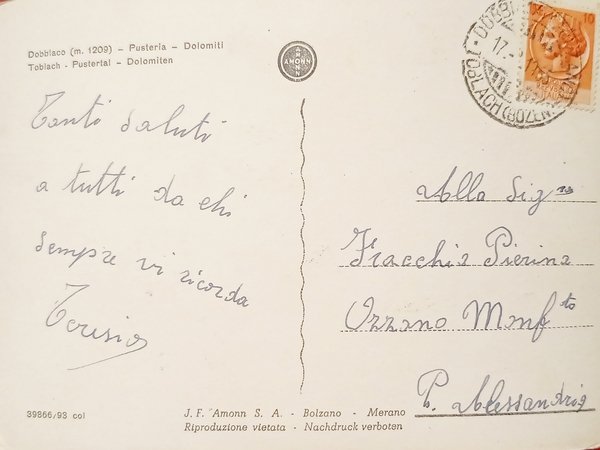 Dobbiaco (m. 1209) - Pusteria - Dolomiti
Toblach - Pustertal - Dolomiten
AMONN
10
17.
TOBLACH (BOZEN
Tanti saluti
a tutti da chi
sempre vi ricorda
Teresio
Alla Sig.na
Fracchia Pierina
Ozzano Monf.to
P. Alessandria
39866/93 col
J. F. Amonn S. A. - Bolzano - Merano
Riproduzione vietata - Nachdruck verboten